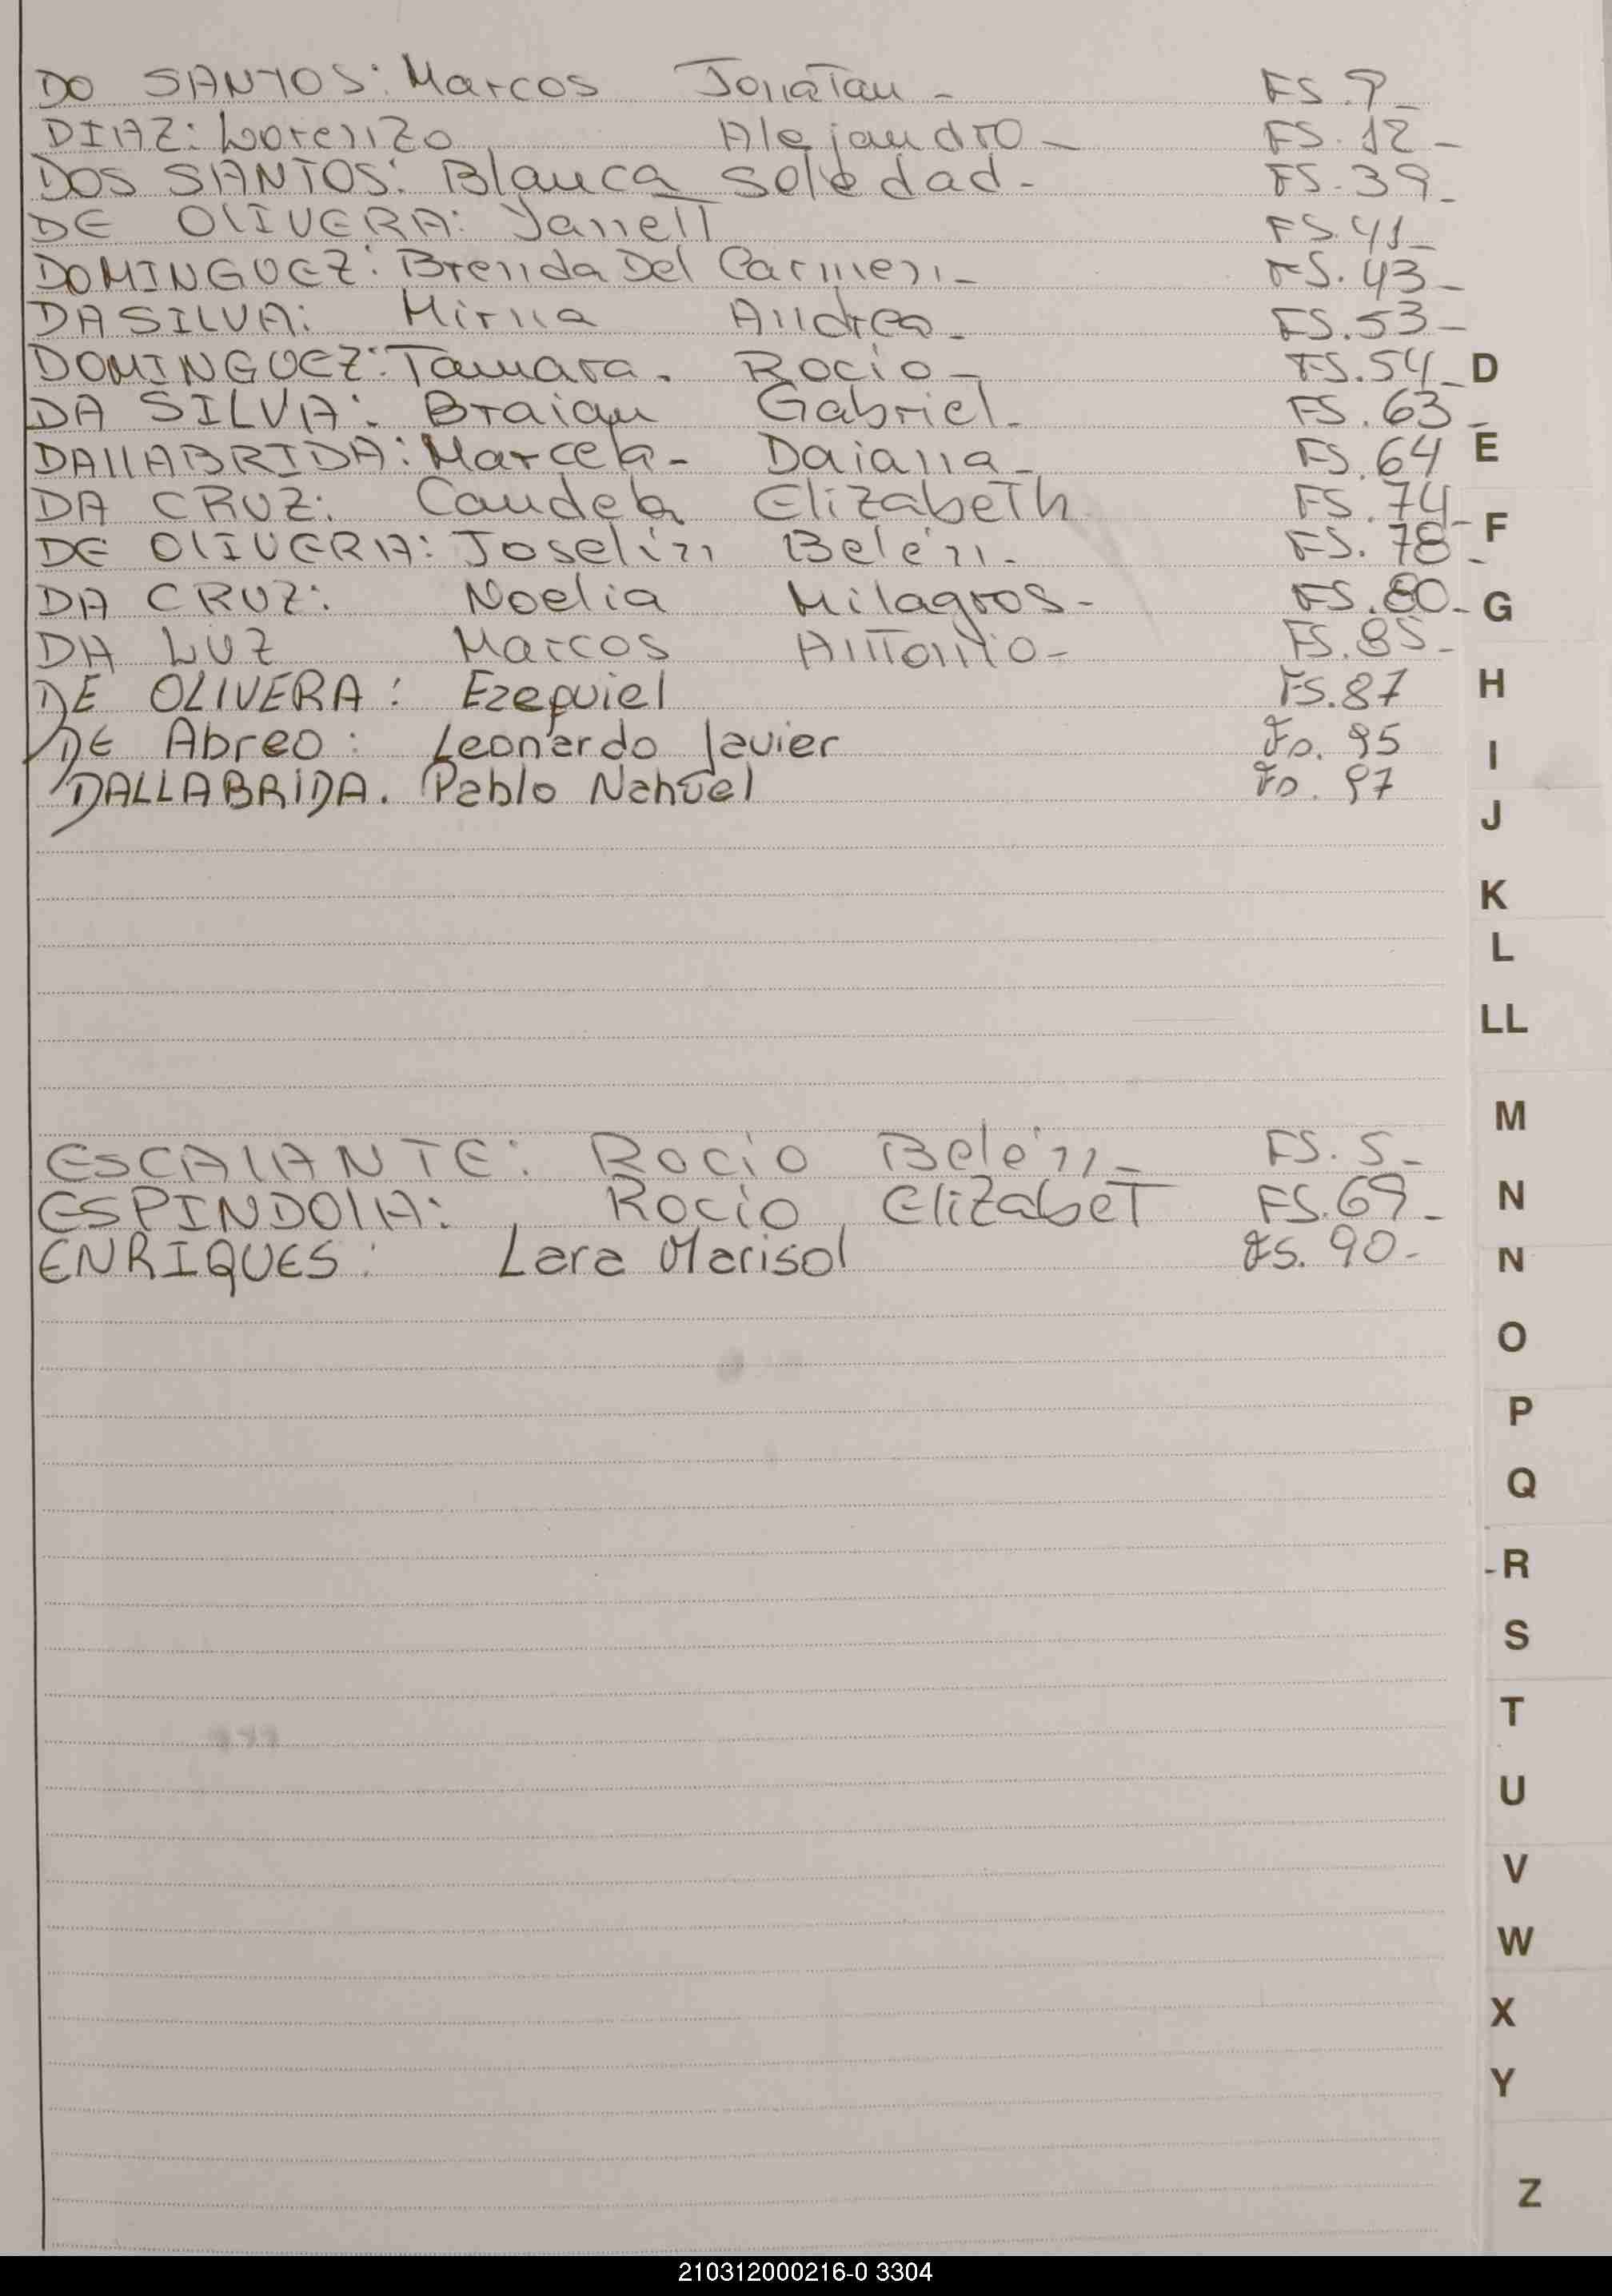 DO SANTOS: Marcos Jonatan - FS. 9-
DIAZ: Lorenzo Alejandro - FS. 12-
DOS SANTOS: Blanca Soledad - FS. 39-
DE OLIVERA: Yanett FS. 41-
DOMINGUEZ: Brenda Del Carmen - FS. 43-
DASILVA: Mirna Andrea - FS. 53-
DOMINGUEZ: Tamara. Rocío - FS. 54-
DA SILVA: Braian Gabriel - FS. 63-
DALLABRIDA: Marcela - Daiana - FS. 64
DA CRUZ: Candela Elizabeth FS. 74-
DE OLIVERA: Joselin Belén - FS. 78-
DA CRUZ: Noelia Milagros - FS. 80-
DA LUZ Marcos Antonio - FS. 85-
DE OLIVERA: Ezequiel FS. 87
DE Abreo: Leonardo Javier Fo. 95
DALLABRIDA. Pablo Nahuel Fo. 97
ESCALANTE: Rocío Belén - FS. 5-
ESPINDOLA: Rocío Elizabet FS. 69-
ENRIQUES: Lara Marisol FS. 90-
D
E
F
G
H
I
J
K
L
LL
M
N
N
O
P
Q
R
S
T
U
V
W
X
Y
Z
210312000216-0 3304